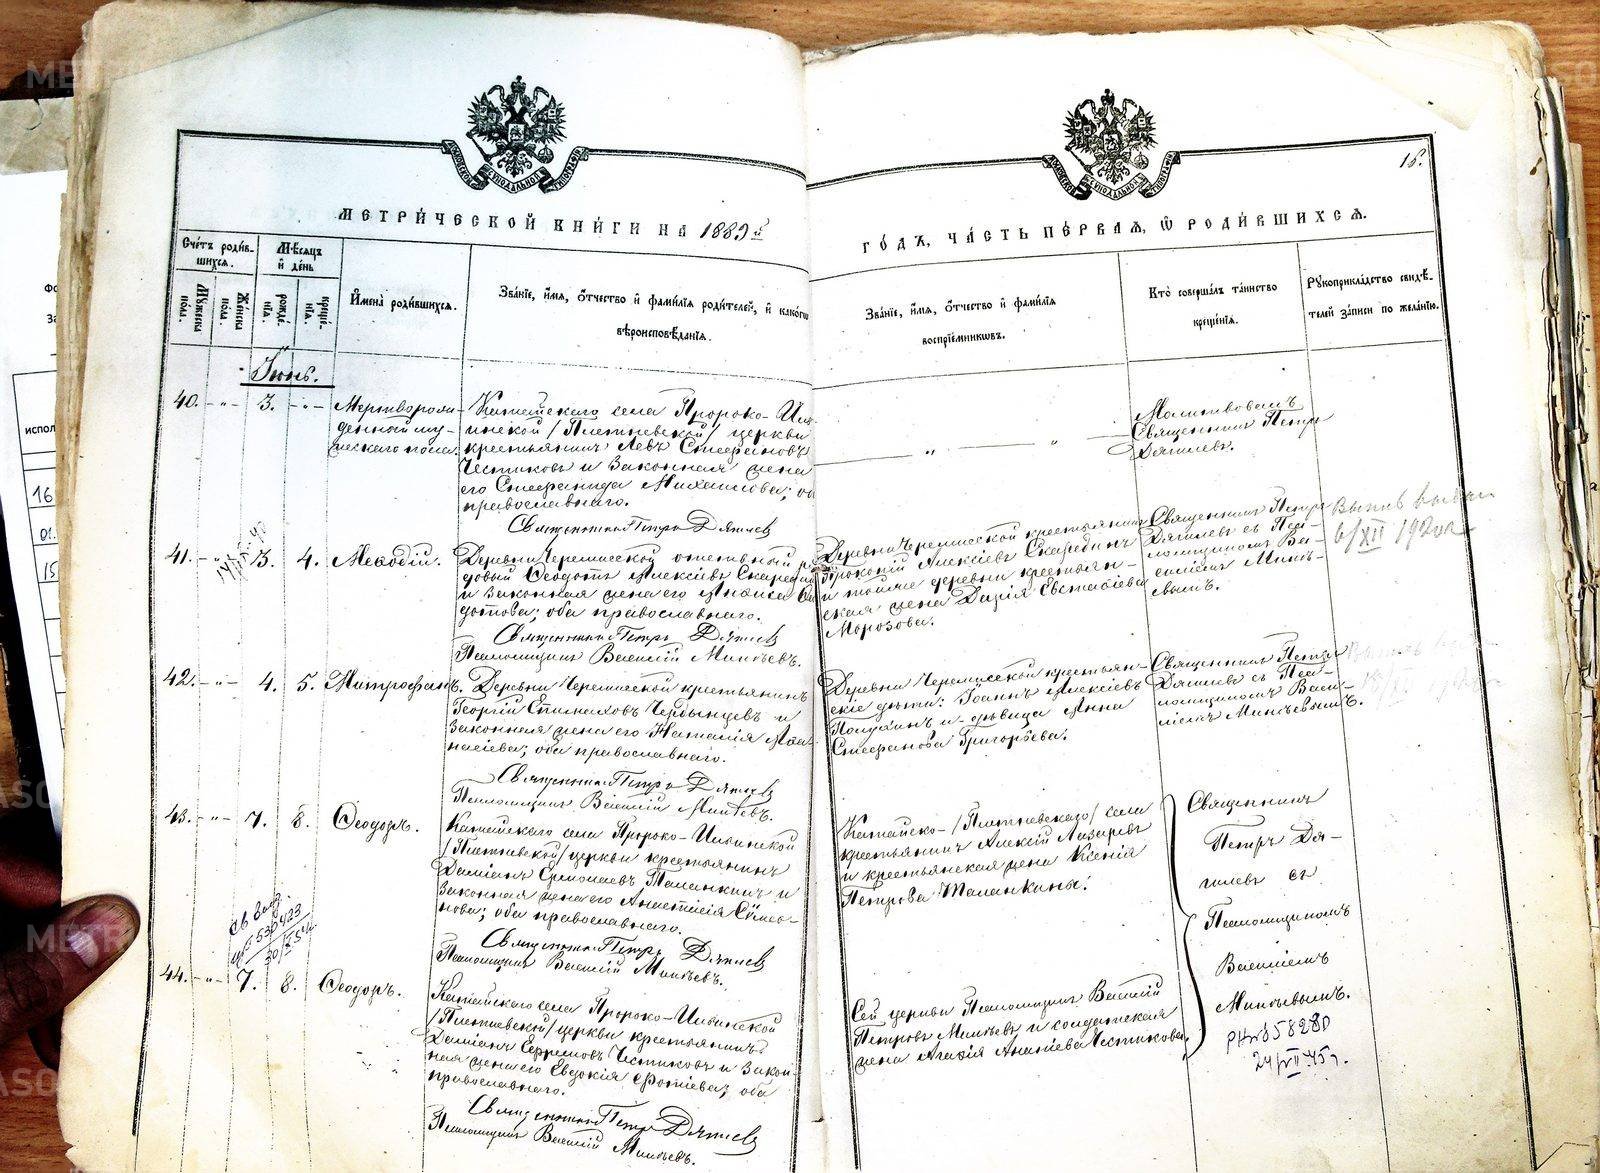 МЕТРИ́ЧЕСКОЙ КНИ́ГИ НА 1889й
ГО́ДЪ, ЧА́СТЬ ПЕ́РВАЯ, Ѡ РОДИ́ВШИХСЯ.
15.
Сче́тъ роди́в-
шихся.
Мꙋ́жеска пола.
Же́нска пола.
Мѣ́сяцъ
и́ де́нь
рожде́нїя.
креще́нїя.
И́мена̀ роди́вшихся.
Зва́нїе, и́мя, о́тчество и́ фами́лїя роди́телей, и́ како́гѡ
вѣроисповѣ́данїя.
Зва́нїе, и́мя, о́тчество и́ фами́лїя
воспрїе́мниковъ.
Кто̀ соверша́лъ та́инство
креще́нїя.
Рꙋкоприкла́дство свидѣ́-
телей за́писи по жела́нїю.
Іюнь.
40. - „ - 3. - „ -
Мертворож-
денный му-
жескаго пола.
Катайскаго села Пророко-Иль-
инской /Плетневской/ церкви
крестьянинъ Левъ Стефановъ
Честиковъ и законная жена
его Стефанида Михаилова; оба
православнаго.
Священникъ Петръ Дягилевъ
Молитвовалъ
Священникъ Петръ
Дягилевъ.
41. - „ - 3. 4. Меѳодій.
Деревни Черемисской отставный ря-
довый Ѳеодотъ Алексіевъ Скарединъ
и законная жена его
дотова; оба православнаго.
Священникъ Петръ Дягилевъ
Псаломщикъ Василій Минѣевъ.
Деревни Черемисской крестьянинъ
Прокопій Алексіевъ Скарединъ
и тойже деревни крестьян-
ская жена Дарія Евстафіева
Морозова.
Священникъ Петръ
Дягилевъ съ Пса-
ломщикомъ Ва-
силіемъ Минѣ-
евымъ.
6/XII 1920
42. - „ - 4. 5. Митрофанъ.
Деревни Черемисской крестьянинъ
Георгій
законная жена его Наталія Аѳа-
насіева; оба православнаго.
Священникъ Петръ Дягилевъ
Псаломщикъ Василій Минѣевъ.
Деревни Черемисской крестьян-
скіе дѣти: Іоаннъ Алексіевъ
и дѣвица Анна
Стефанова Григорьева.
Священникъ Петръ
Дягилевъ съ Пса-
ломщикомъ Васи-
ліемъ Минѣевымъ.
43. - „ - 7. 8. Ѳеодоръ.
Катайскаго села Пророко-Ильинской
/Плетневской/ церкви крестьянинъ
Даміанъ Ермолаевъ Таланкинъ и
законная жена его Анастасія Сѷмео-
нова; оба православнаго.
Священникъ Петръ Дягилевъ
Псаломщикъ Василій Минѣевъ.
Катайско- /Плетневскаго/ села
крестьянинъ Алексій Лазаревъ
и крестьянская жена Ксенія
Петрова Таланкины.
Священникъ
Петръ Дя-
гилевъ съ
Псаломщикомъ
Василіемъ
Минѣевымъ.
44. - „ - 7. 8. Ѳеодоръ.
Катайскаго села Пророко-Ильинской
/Плетневской/ церкви крестьянинъ
Даміанъ Ефремовъ Честиковъ и закон-
ная жена его Евдокія Фотіева; оба
православнаго.
Священникъ Петръ Дягилевъ
Псаломщикъ Василій Минѣевъ.
Сей церкви Псаломщикъ Василій
Петровъ Минѣевъ и солдатская
жена Агафія Ананіева Честикова.